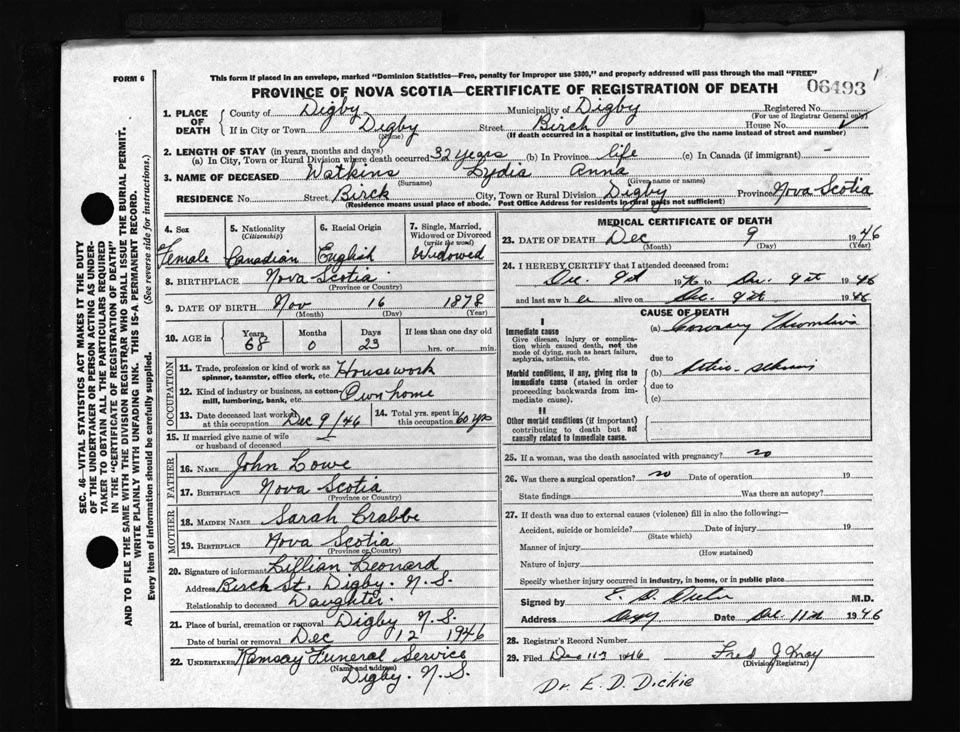 FORM 6
This form if placed in an envelope, marked "Dominion Statistics—Free, penalty for improper use $300," and properly addressed will pass through the mail "FREE"
1
PROVINCE OF NOVA SCOTIA—CERTIFICATE OF REGISTRATION OF DEATH
06493
SEC. 46—VITAL STATISTICS ACT MAKES IT THE DUTY
OF THE UNDERTAKER OR PERSON ACTING AS UNDER-
TAKER TO OBTAIN ALL THE PARTICULARS REQUIRED
IN THE "CERTIFICATE OF REGISTRATION OF DEATH"
AND TO FILE THE SAME WITH THE DIVISION REGISTRAR WHO SHALL ISSUE THE BURIAL PERMIT.
WRITE PLAINLY WITH UNFADING INK. THIS IS A PERMANENT RECORD.
Every item of information should be carefully supplied. (See reverse side for instructions.)
1. PLACE OF DEATH
County of Digby Municipality of Digby Registered No.
(For use of Registrar General only)
If in City or Town Digby Street Birch House No.
(Name) (If death occurred in a hospital or institution, give the name instead of street and number)
2. LENGTH OF STAY (in years, months and days)
(a) In City, Town or Rural Division where death occurred 32 years (b) In Province life (c) In Canada (if immigrant) –
3. NAME OF DECEASED Watkins Lydia Anna
(Surname) (Given name or names)
RESIDENCE No. Street Birch City, Town or Rural Division Digby Province Nova Scotia
(Residence means usual place of abode. Post Office Address for residents in rural parts not sufficient)
4. Sex Female
5. Nationality (Citizenship) Canadian
6. Racial Origin English
7. Single, Married, Widowed or Divorced (write the word) Widowed
8. BIRTHPLACE Nova Scotia
(Province or Country)
9. DATE OF BIRTH Nov 16 1878
(Month) (Day) (Year)
10. AGE in Years 68 Months 0 Days 23 If less than one day old
hrs. or min.
OCCUPATION
11. Trade, profession or kind of work as spinner, teamster, office clerk, etc. Housework
12. Kind of industry or business, as cotton-mill, lumbering, bank, etc. Own home
13. Date deceased last worked at this occupation Dec 9/46
14. Total yrs. spent in this occupation 60 yrs
15. If married give name of wife or husband of deceased
FATHER
16. NAME John Lowe
17. BIRTHPLACE Nova Scotia
(Province or Country)
MOTHER
18. MAIDEN NAME Sarah Crabbe
19. BIRTHPLACE Nova Scotia
(Province or Country)
20. Signature of informant Lillian Leonard
Address Birch St. Digby. N.S.
Relationship to deceased Daughter.
21. Place of burial, cremation or removal Digby N.S.
Date of burial or removal Dec 12 1946
22. UNDERTAKER Ramsay Funeral Service
(Name and address)
Digby. N.S.
MEDICAL CERTIFICATE OF DEATH
23. DATE OF DEATH Dec 9 1946
(Month) (Day) (Year)
24. I HEREBY CERTIFY that I attended deceased from:
Dec. 9th 1946 to Dec. 9th 1946
and last saw h er alive on Dec. 9th 1946
CAUSE OF DEATH
I
Immediate cause
Give disease, injury or complication which caused death, not the mode of dying, such as heart failure, asphyxia, asthenia, etc.
(a) Coronary Thrombosis
due to
Morbid conditions, if any, giving rise to immediate cause (stated in order proceeding backwards from immediate cause).
(b)
due to
(c)
II
Other morbid conditions (if important) contributing to death but not causally related to immediate cause.
25. If a woman, was the death associated with pregnancy? no
26. Was there a surgical operation? no Date of operation 19
State findings Was there an autopsy?
27. If death was due to external causes (violence) fill in also the following:—
Accident, suicide or homicide? Date of injury 19
(State which)
Manner of injury
(How sustained)
Nature of injury
Specify whether injury occurred in industry, in home, or in public place
Signed by E. D. M.D.
Address Date Dec. 11th 1946
28. Registrar's Record Number
29. Filed Dec 1946 Fred J.
(Division Registrar)
Dr. E. D. Dickie